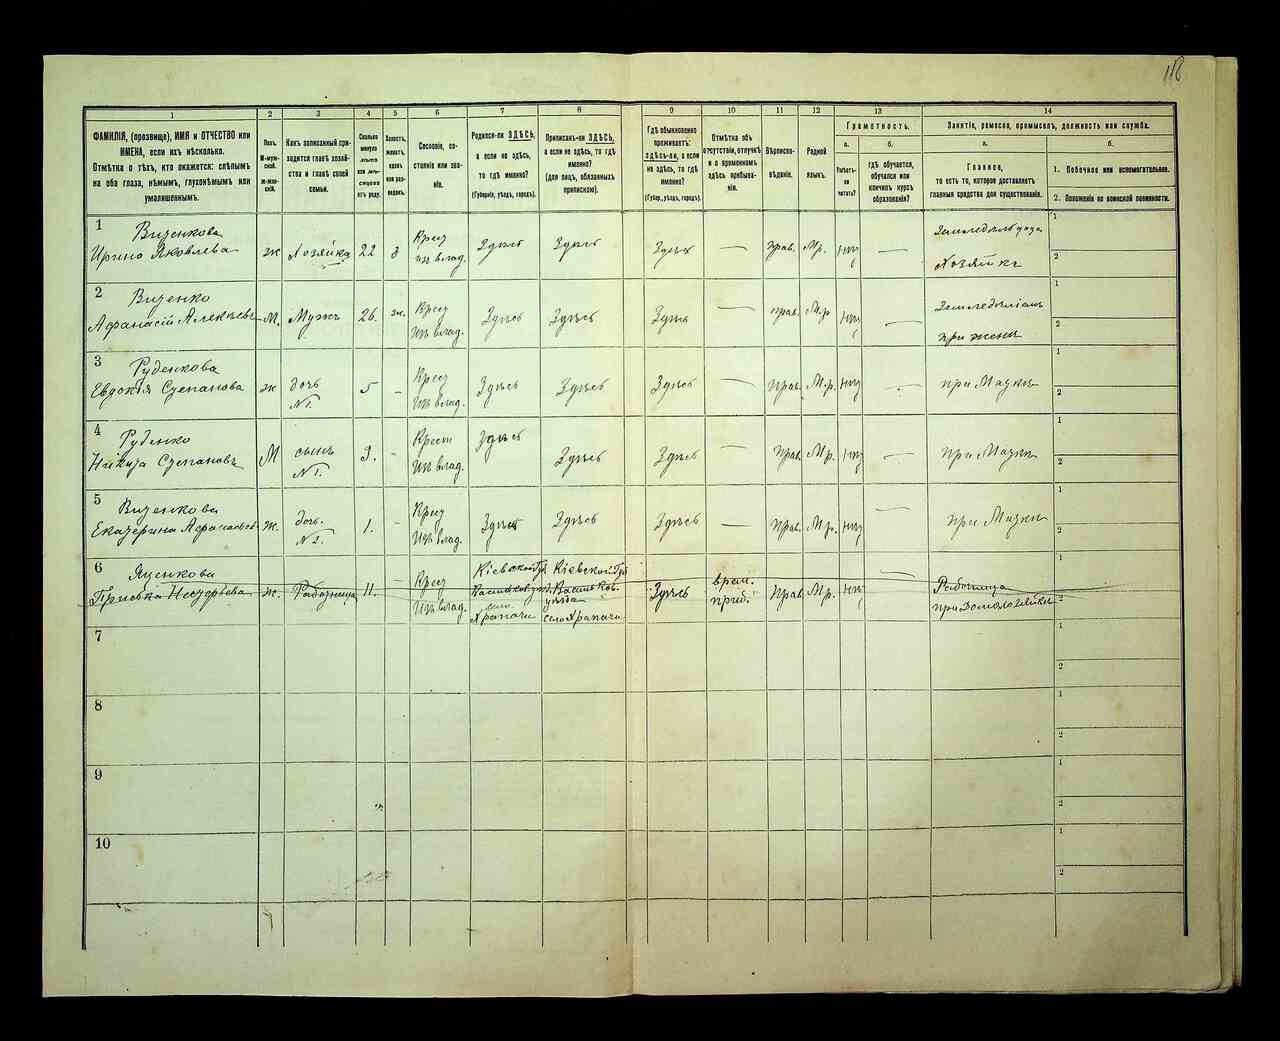 118
1
2
3
4
5
6
7
8
9
10
11
12
13
14
ФАМИЛІЯ, (прозвище), ИМЯ и ОТЧЕСТВО или
ИМЕНА, если ихъ нѣсколько.
Отмѣтка о тѣхъ, кто окажется: слѣпымъ
на оба глаза, нѣмымъ, глухонѣмымъ или
умалишеннымъ.
Полъ.
М-муж-
ской.
Ж-жен-
скій.
Какъ записанный при-
ходится главѣ хозяй-
ства и главѣ своей
семьи.
Сколько
минуло
лѣтъ
или мѣ-
сяцевъ
отъ роду.
Холостъ,
женатъ,
вдовъ
или раз-
веденъ.
Сословіе, со-
стояніе или зва-
ніе.
Родился-ли ЗДѢСЬ,
а если не здѣсь,
то гдѣ именно?
(Губернія, уѣздъ, городъ).
Приписанъ-ли ЗДѢСЬ,
а если не здѣсь, то гдѣ
именно?
(для лицъ, обязанныхъ
припискою).
Гдѣ обыкновенно
проживаетъ:
ЗДѢСЬ-ЛИ, а если
не здѣсь, то гдѣ
именно?
(Губер., уѣздъ, городъ).
Отмѣтка объ
отсутствіи, отлучкѣ
и о временномъ
здѣсь пребыва-
ніи.
Вѣроиспо-
вѣданіе.
Родной
языкъ.
Грамотность.
а.
Умѣетъ-
ли
читать?
б.
гдѣ обучается,
обучался или
кончилъ курсъ
образованія?
Занятіе, ремесло, промыселъ, должность или служба.
а.
Главное,
то есть то, которое доставляетъ
главныя средства для существованія.
б.
1. Побочное или вспомогательное.
2. Положеніе по воинской повинности.
1 Вценкова
Ирина Яковлева ж Хозяйка 22 З Крест из влад. Здѣсь Здѣсь Здѣсь — Прав. М.р. нѣт — Хозяйка 1 2
2
Афанасій Алексѣевъ М. Мужъ 26. ж. Крест Изъ влад. Здѣсь Здѣсь Здѣсь — прав. М.р нѣт — при жены 1 2
3 Руденкова
Евдокія Степанова ж дочь №1. 5 — Крест Изъ влад. Здѣсь Здѣсь Здѣсь — Прав. М.р. нѣт — при Матки 1 2
4 Руденко
Никита Степановъ М сынъ №1. 3. - Крест Изъ влад. Здѣсь Здѣсь Здѣсь — Прав. М.р. нѣт — при Матки 1 2
5
Екатерина Афанасьева ж. дочь. №2. 1. - Крест Изъ влад. Здѣсь Здѣсь Здѣсь — Прав. М.р. нѣт — при Матки 1 2
6 Яценкова
ж. Работница 11. — Крест Изъ влад. Кіевской Губ Васильков. у. село Храпачи Кіевской Губ Васильков. уѣзда село Храпачи Здѣсь врем. приб. Прав М.р. нѣт — Работница при 1 2
7 1 2
8 1 2
9 1 2
10 1 2